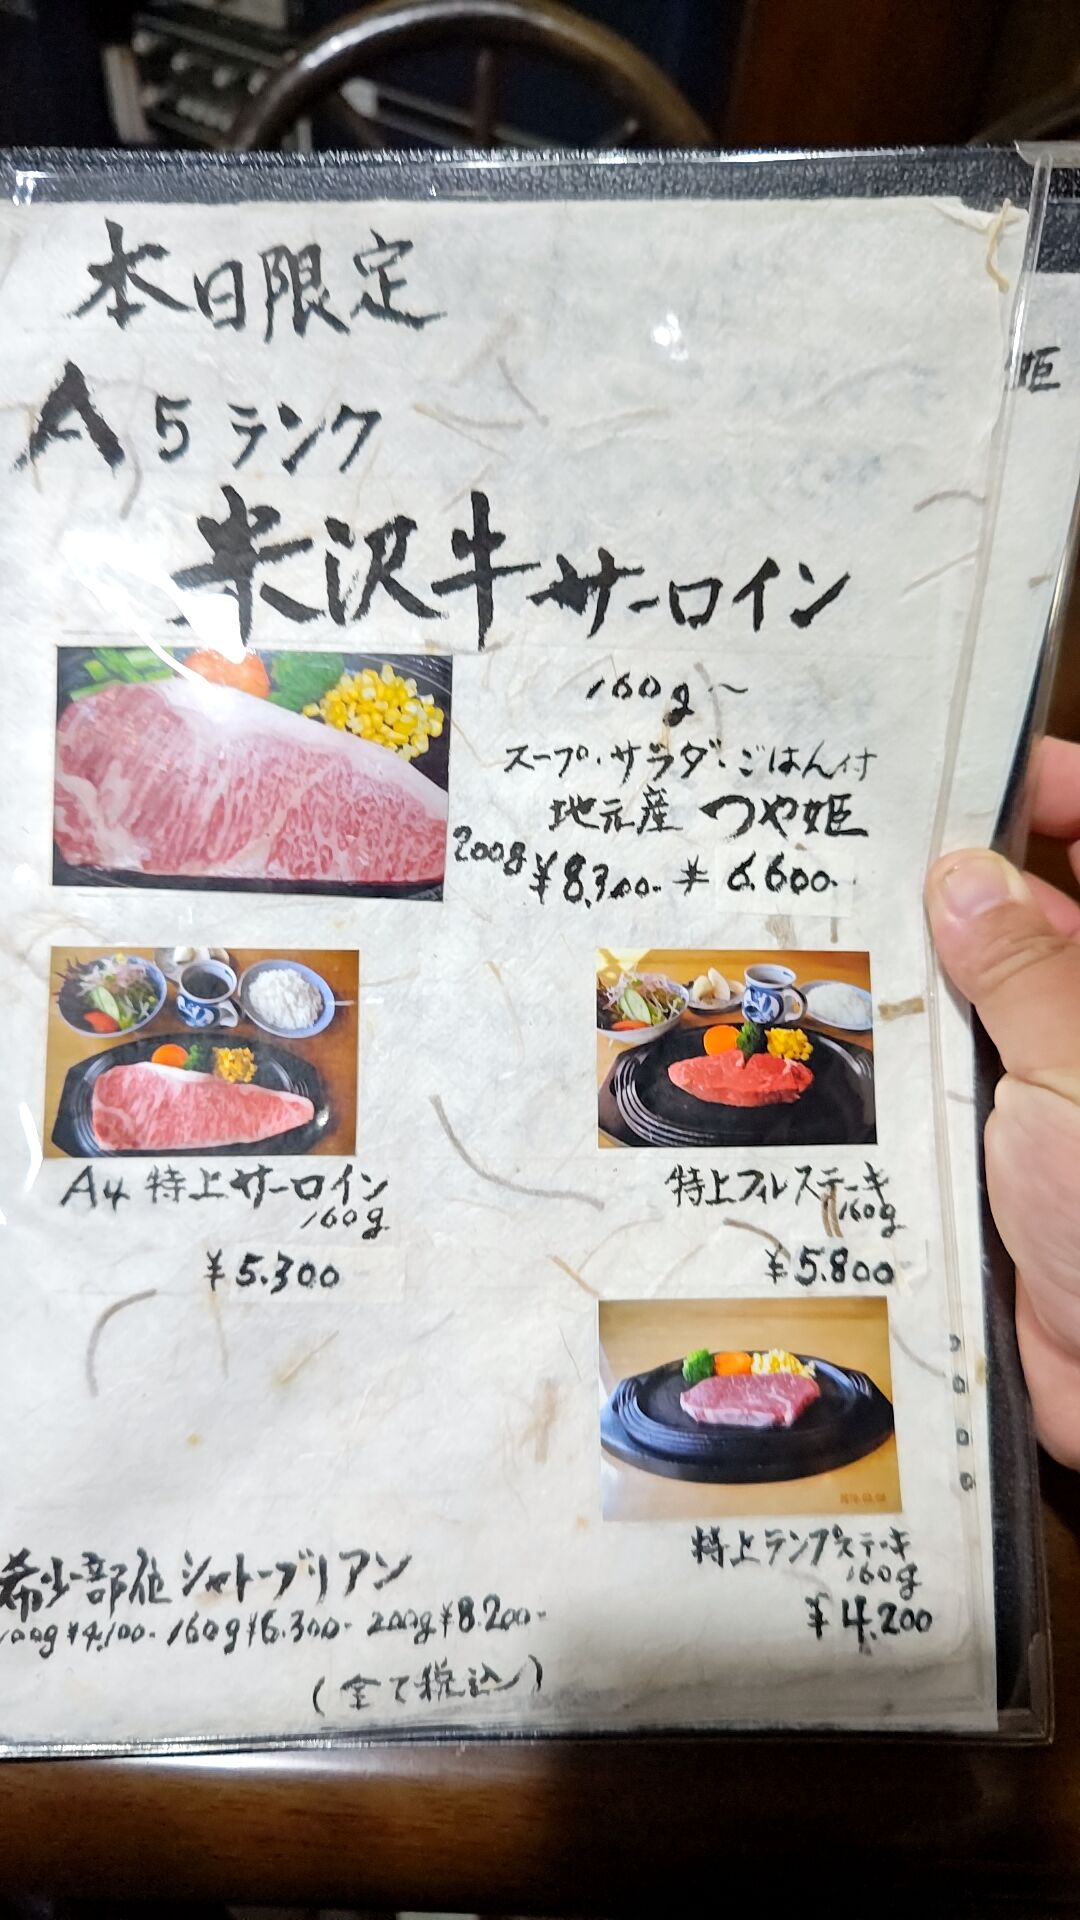 本日限定
A5ランク
米沢牛サーロイン
160g〜
スープ・サラダ・ごはん付
地元産 つや姫
200g ¥8,300- ¥6.600-
A4 特上サーロイン
160g
¥5.300
特上フィレステーキ
160g
¥5.800
特上ランプステーキ
160g
¥4.200
希少部位シャトーブリアン
100g ¥4,100- 160g ¥6.300- 200g ¥8.200-
(全て税込)
姫